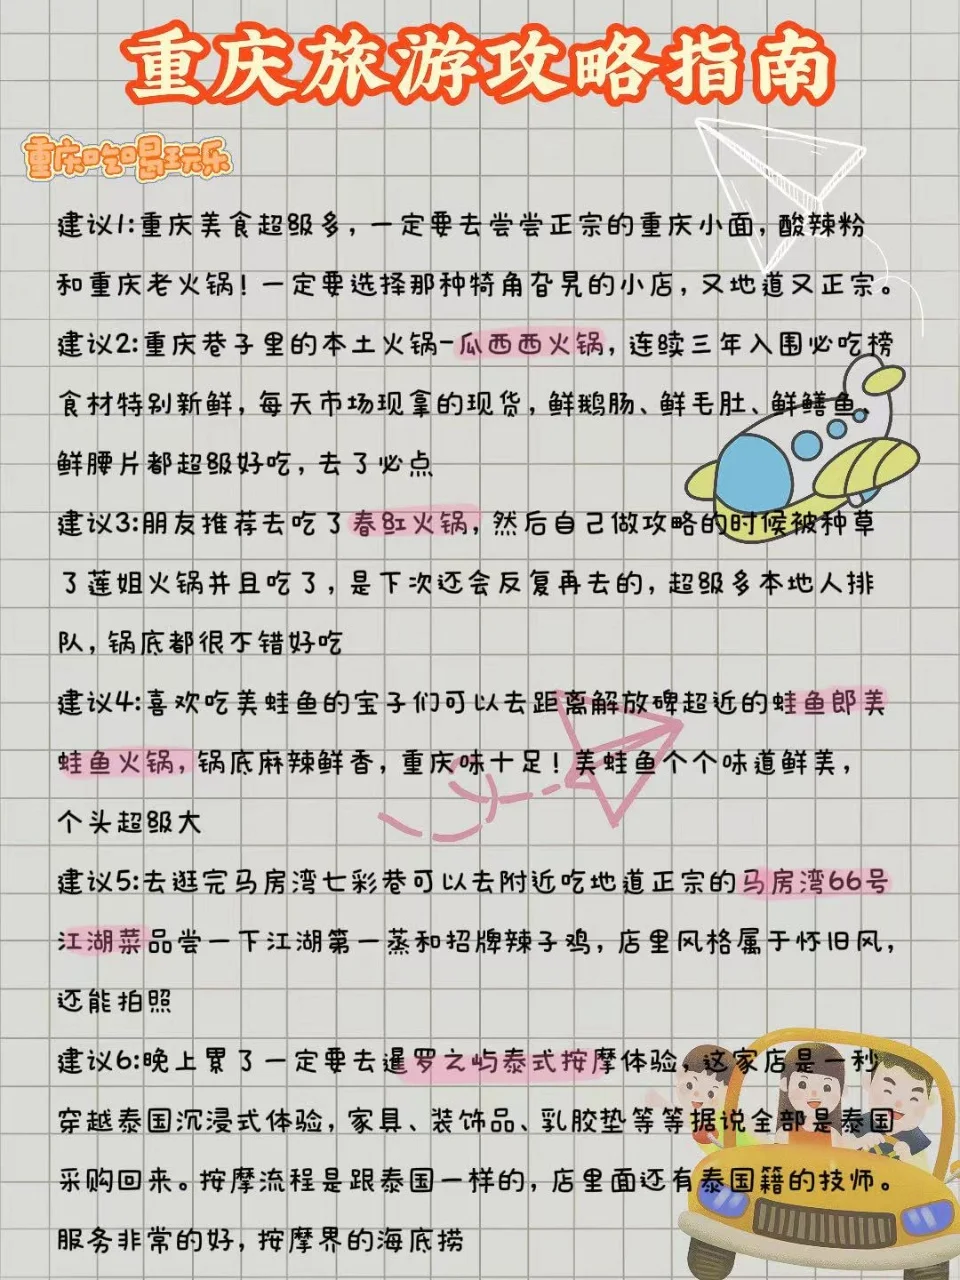 重庆旅游攻略指南
重庆吃喝玩乐
建议1:重庆美食超级多，一定要去尝尝正宗的重庆小面，酸辣粉
和重庆老火锅！一定要选择那种犄角旮旯的小店，又地道又正宗。
建议2:重庆巷子里的本土火锅-瓜西西火锅，连续三年入围必吃榜
食材特别新鲜，每天市场现拿的现货，鲜鹅肠、鲜毛肚、鲜鳝鱼、
鲜腰片都超级好吃，去了必点
建议3:朋友推荐去吃了春釭火锅，然后自己做攻略的时候被种草
了莲姐火锅并且吃了，是下次还会反复再去的，超级多本地人排
队，锅底都很不错好吃
建议4:喜欢吃美蛙鱼的宝子们可以去距离解放碑超近的蛙鱼郎美
蛙鱼火锅，锅底麻辣鲜香，重庆味十足！美蛙鱼个个味道鲜美，
个头超级大
建议5:去逛完马房湾七彩巷可以去附近吃地道正宗的马房湾66号
江湖菜品尝一下江湖第一蒸和招牌辣子鸡，店里风格属于怀旧风，
还能拍照
建议6:晚上累了一定要去暹罗之屿泰式按摩体验，这家店是一秒
穿越泰国沉浸式体验，家具、装饰品、乳胶垫等等据说全部是泰国
采购回来。按摩流程是跟泰国一样的，店里面还有泰国籍的技师。
服务非常的好，按摩界的海底捞